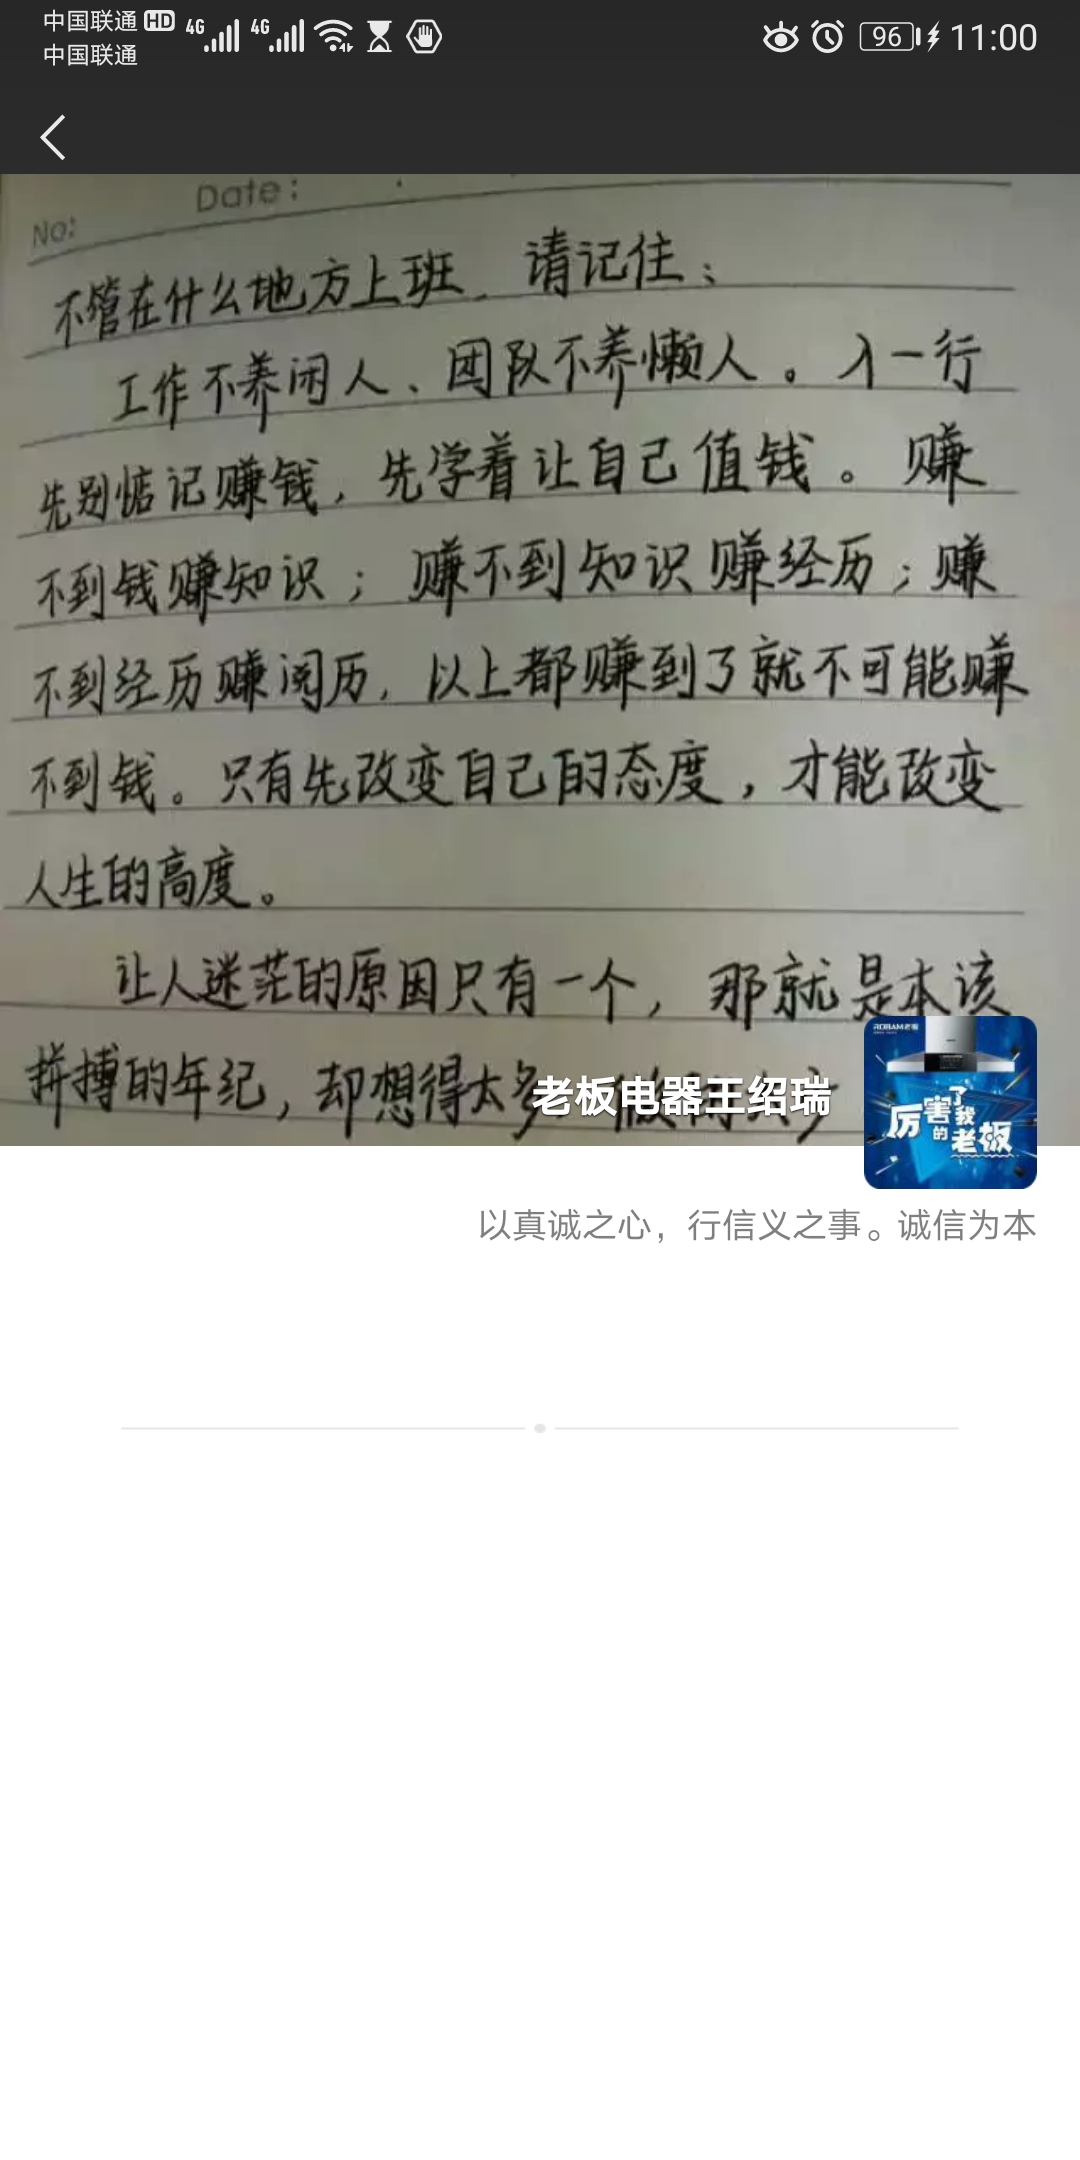 中国联通 HD 4G 4G 96 11:00
中国联通
No: Date:
不管在什么地方上班、请记住:
工作不养闲人、团队不养懒人。入一行
先别惦记赚钱,先学着让自己值钱。赚
不到钱赚知识;赚不到知识赚经历;赚
不到经历赚阅历,以上都赚到了就不可能赚
不到钱。只有先改变自己的态度,才能改变
人生的高度。
让人迷茫的原因只有一个,那就是本该
拼搏的年纪,却想得太多
老板电器王绍瑞
ROBAM老板
厉害了我的老板
以真诚之心,行信义之事。诚信为本